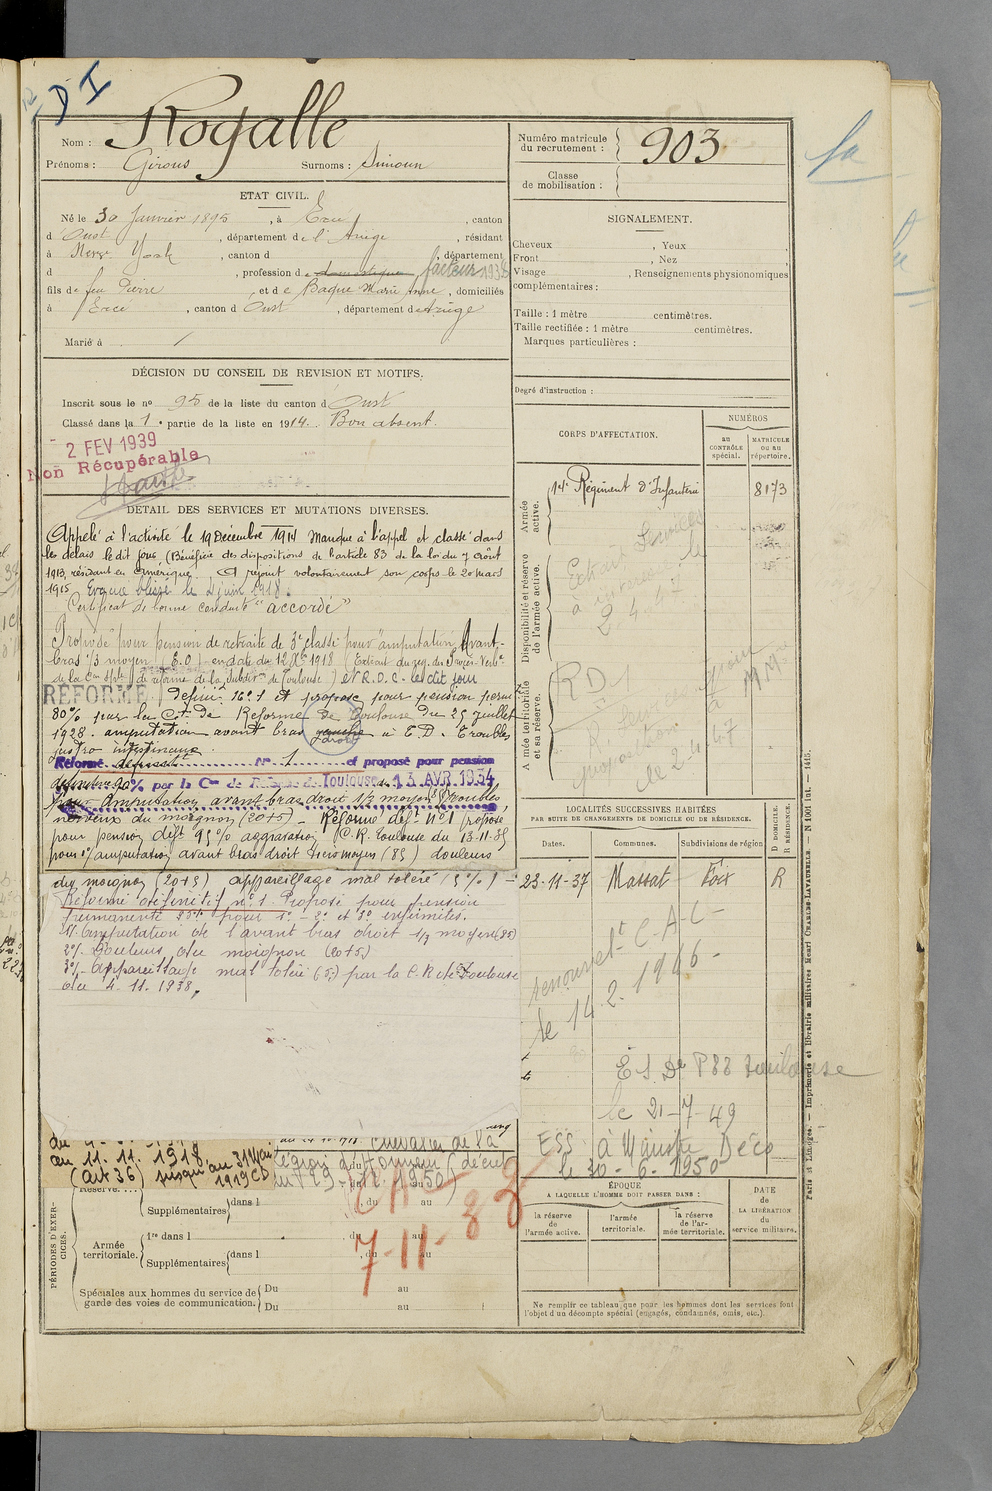 D I
Nom : Rogalle
Prénoms : Girons Surnoms : Simoun
Numéro matricule du recrutement : 903
Classe de mobilisation :
ETAT CIVIL.
Né le 30 Janvier 1895, à Ercé, canton
d'Oust, département de l'Ariège, résidant
à New York, canton d , département
d , profession de domestique facteur 1938
fils de feu Pierre et de Baque Marie Anne, domiciliés
à Ercé, canton d'Oust, département d'Ariège
Marié à /
SIGNALEMENT.
Cheveux , Yeux
Front , Nez
Visage , Renseignements physionomiques
complémentaires :
Taille : 1 mètre centimètres.
Taille rectifiée : 1 mètre centimètres.
Marques particulières :
Degré d'instruction :
DÉCISION DU CONSEIL DE REVISION ET MOTIFS.
Inscrit sous le no 95 de la liste du canton d'Oust
Classé dans la 1e partie de la liste en 1914. Bon absent.
2 FEV 1939
Non Récupérable
DÉTAIL DES SERVICES ET MUTATIONS DIVERSES.
Appelé à l'activité le 19 Décembre 1914 Manque à l'appel et classé dans
les délais le dit jour (Bénéficie des dispositions de l'article 83 de la loi du 7 Août
1913, résidant en Amérique. A rejoint volontairement son corps le 20 mars
1915 Evacué blessé le 2 juin 1918.
Certificat de bonne conduite "accordé"
Proposé pour pension de retraite de 3e classe pour "amputation Avant-
bras 1/3 moyen (E.D) en date du 12 Xbre 1918 (Extrait du reg. des Procès-Verb.
de la Con Sple de réforme de la Subdivon de Toulouse) et R.D.C. le dit jour
RÉFORMÉ Définit no 1 et proposé pour pension perm
80% par la Con de Réforme de Toulouse du 25 juillet
1928. amputation avant bras gauche droit à E.D. Troubles
gastro intestinaux.
Réformé définit No 1 et proposé pour pension
définitive 90% par la Con de Réforme de Toulouse du 13 AVR. 1934
Pour amputation avant bras droit 1/3 moyen Troubles
nerveux du moignon (20+5) - Réformé déft no 1 proposé
pour pension déft 95% aggravation (C.R. Toulouse du 13-11-35
pour 1°/ amputation avant bras droit tiers moyen (85) douleurs
du moignon (20+5) appareillage mal toléré (5%) -
Réformé définitif no 1. Proposé pour pension
permanente 95% pour 1° - 2° et 3° infirmités.
1°/ Amputation de l'avant bras droit 1/3 moyen (85)
2°/ Douleurs du moignon (20+5)
3°/ Appareillage mal toléré (5) par la C.R de Toulouse
du 4. 11. 1938.
au 11. 11. 1918.
(art 36) jusqu'au 31 Mai
1919 CD
chevalier de la
Légion d'Honneur (décret
1950)
CORPS D'AFFECTATION.
NUMÉROS
au CONTRÔLE spécial.
MATRICULE OU AU répertoire.
Armée active.
14e Régiment d'Infanterie 8173
Disponibilité et réserve de l'armée active.
Extrait Services
à
2-4-47
Armée territoriale et sa réserve.
RD
le 2-4-47
LOCALITÉS SUCCESSIVES HABITÉES
PAR SUITE DE CHANGEMENTS DE DOMICILE OU DE RÉSIDENCE.
Dates. Communes. Subdivisions de région D DOMICILE. R RÉSIDENCE.
23-11-37 Massat Foix R
renouvelt C-A-C-
le 14. 2. 1946 -
ES De P88 Toulouse
le 21-7-49
ESS à Ministre Déco
le 30-6-1950
PÉRIODES D'EXERCICES.
Réserve.
Supplémentaires dans l , du au
Armée territoriale.
1re dans l , du au
Supplémentaires dans l , du au
7-11-33
Spéciales aux hommes du service de garde des voies de communication.
Du au
Du au
ÉPOQUE
A LAQUELLE L'HOMME DOIT PASSER DANS :
la réserve de l'armée active.
l'armée territoriale.
la réserve de l'armée territoriale.
DATE DE LA LIBÉRATION du service militaire.
Ne remplir ce tableau que pour les hommes dont les services font
l'objet d'un décompte spécial (engagés, condamnés, omis, etc.).
Paris et Limoges. — Imprimerie et librairie militaires Henri CHARLES-LAVAUZELLE. — N 1001 int. — 1415.